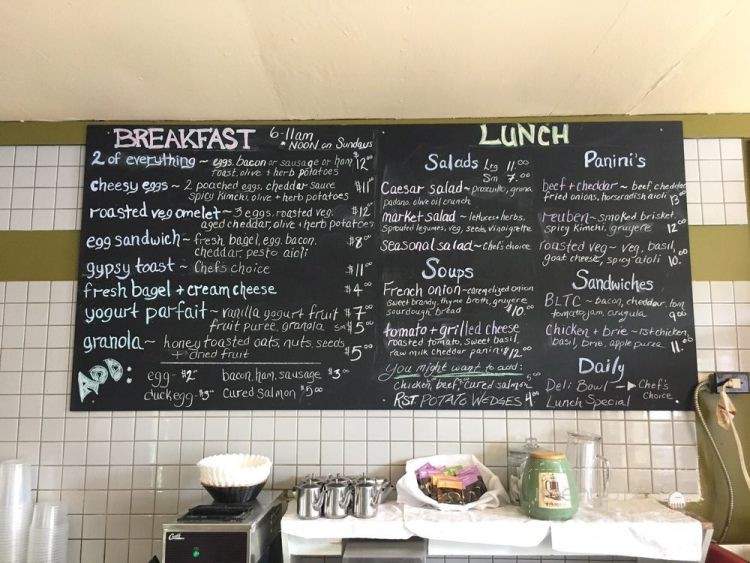 BREAKFAST 6-11am
*NOON on Sundays
2 of everything ~ eggs, bacon or sausage or ham, $12.00
toast, olive + herb potatoes
cheesy eggs ~ 2 poached eggs, cheddar sauce $11.00
spicy Kimchi, olive + herb potatoes
roasted veg omelet ~ 3 eggs, roasted veg. $12.00
aged cheddar, olive + herb potatoes
egg sandwich ~ fresh bagel, egg, bacon, $8.00
cheddar, pesto aioli
gypsy toast ~ Chef's choice $11.00
fresh bagel + cream cheese $4.00
yogurt parfait ~ vanilla yogurt fruit $7.00
fruit puree, granola sm $5.00
granola ~ honey toasted oats, nuts, seeds $5.00
+ dried fruit
ADD:
egg - $2.00 bacon, ham, sausage $3.00
duck egg - $3.00 cured salmon $5.00
LUNCH
Salads Lrg 11.00
Sm 7.00
Caesar salad ~ prosciutto, grana
padano, olive oil crunch
market salad ~ lettuces + herbs,
sprouted legumes, veg, seeds, vinaigrette
seasonal salad ~ chefs choice
Soups
French onion ~ caramelized onion
sweet brandy, thyme broth, gruyere
sourdough bread $10.00
tomato + grilled cheese
roasted tomato, sweet basil,
raw milk cheddar panini $12.00
You might want to add:
chicken, beef, cured salmon 5.00
RST POTATO WEDGES 4.00
Panini's
beef + cheddar ~ beef, cheddar
fried onions, horseradish aioli 13.00
reuben ~ smoked brisket,
spicy Kimchi, gruyere 12.00
roasted veg ~ veg, basil,
goat cheese, spicy aioli 10.00
Sandwiches
BLTC ~ bacon, cheddar, tom,
tomato jam, arugula 9.00
Chicken + brie ~ rst chicken,
basil, brie, apple puree 11.00
Daily
Deli Bowl → Chef's
Lunch Special Choice